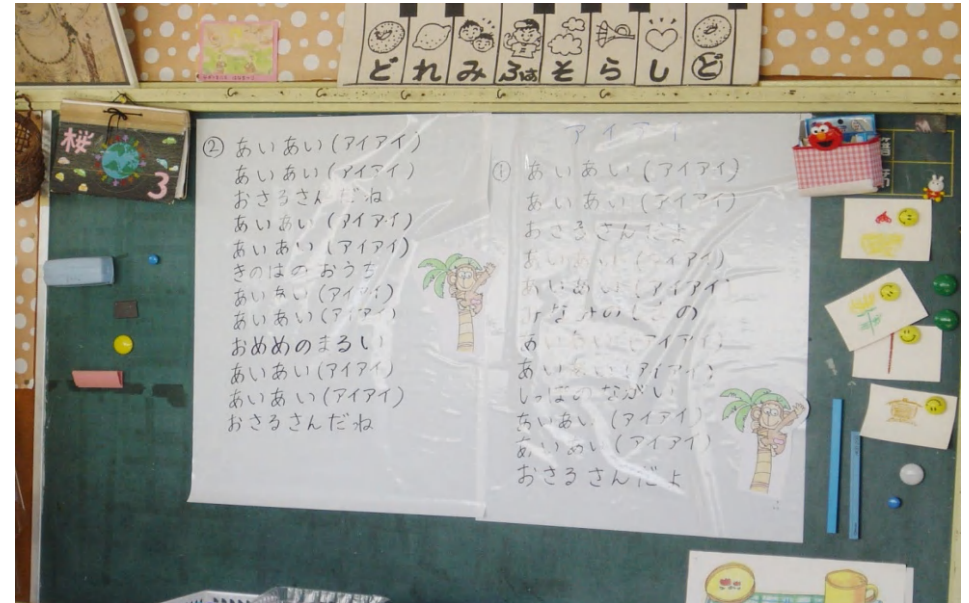 どれみふぁそらしど
桜
3
アイアイ
① あいあい(アイアイ)
あいあい(アイアイ)
おさるさんだよ
あいあい(アイアイ)
あいあい(アイアイ)
みなみのしまの
あいあい(アイアイ)
あいあい(アイアイ)
しっぽのながい
あいあい(アイアイ)
あいあい(アイアイ)
おさるさんだよ
② あいあい(アイアイ)
あいあい(アイアイ)
おさるさんだね
あいあい(アイアイ)
あいあい(アイアイ)
きのはのおうち
あいあい(アイアイ)
あいあい(アイアイ)
おめめのまるい
あいあい(アイアイ)
あいあい(アイアイ)
おさるさんだね